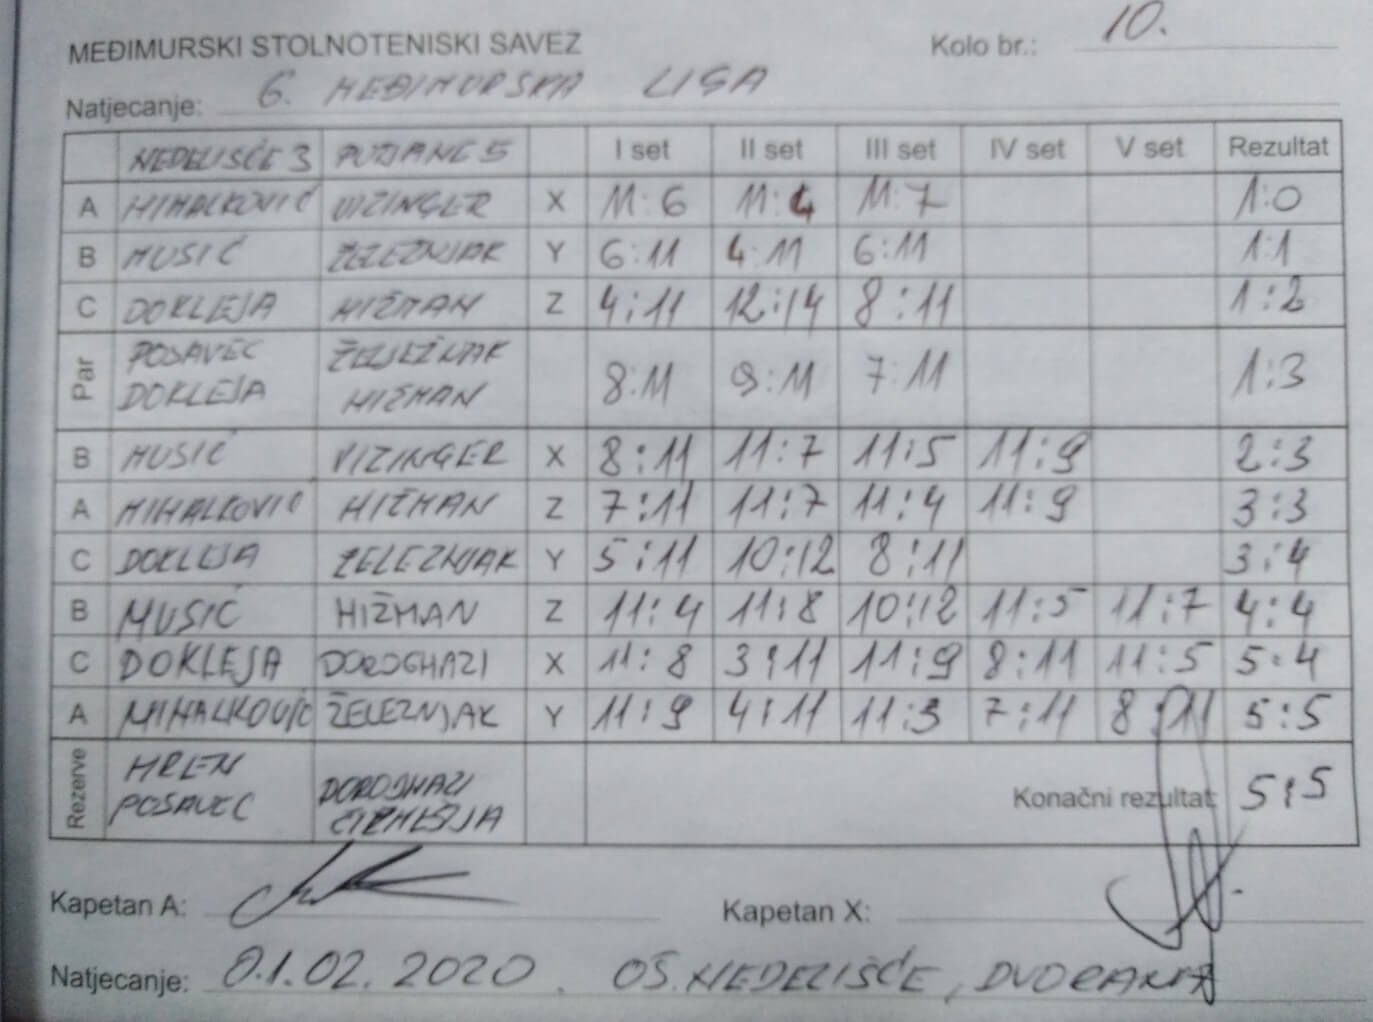 MEĐIMURSKI STOLNOTENISKI SAVEZ Kolo br.: 10.
Natjecanje: 6. MEĐIMURSKA LIGA
NEDELIŠĆE 3 PUŠĆINE 5 I set II set III set IV set V set Rezultat
A MIHALKOVIĆ VIZINGER X 11:6 11:4 11:7 1:0
B MUSIĆ ŽELEZNJAK Y 6:11 4:11 6:11 1:1
C DOKLEJA HIŽMAN Z 4:11 12:14 8:11 1:2
Par POSAVEC DOKLEJA ŽELJEZNJAK HIŽMAN 8:11 9:11 7:11 1:3
B MUSIĆ VIZINGER X 8:11 11:7 11:5 11:9 2:3
A MIHALKOVIĆ HIŽMAN Z 7:11 11:7 11:4 11:9 3:3
C DOKLEJA ŽELEZNJAK Y 5:11 10:12 8:11 3:4
B MUSIĆ HIŽMAN Z 11:4 11:8 10:12 11:5 11:7 4:4
C DOKLEJA DOROGHAZI X 11:8 3:11 11:9 8:11 11:5 5:4
A MIHALKOVIĆ ŽELEZNJAK Y 11:9 4:11 11:3 7:11 8:11 5:5
Rezerve HREN POSAVEC DOROGHAZI Konačni rezultat: 5:5
Kapetan A: Kapetan X:
Natjecanje: 01.02.2020. OŠ. NEDELIŠĆE, DVORANA